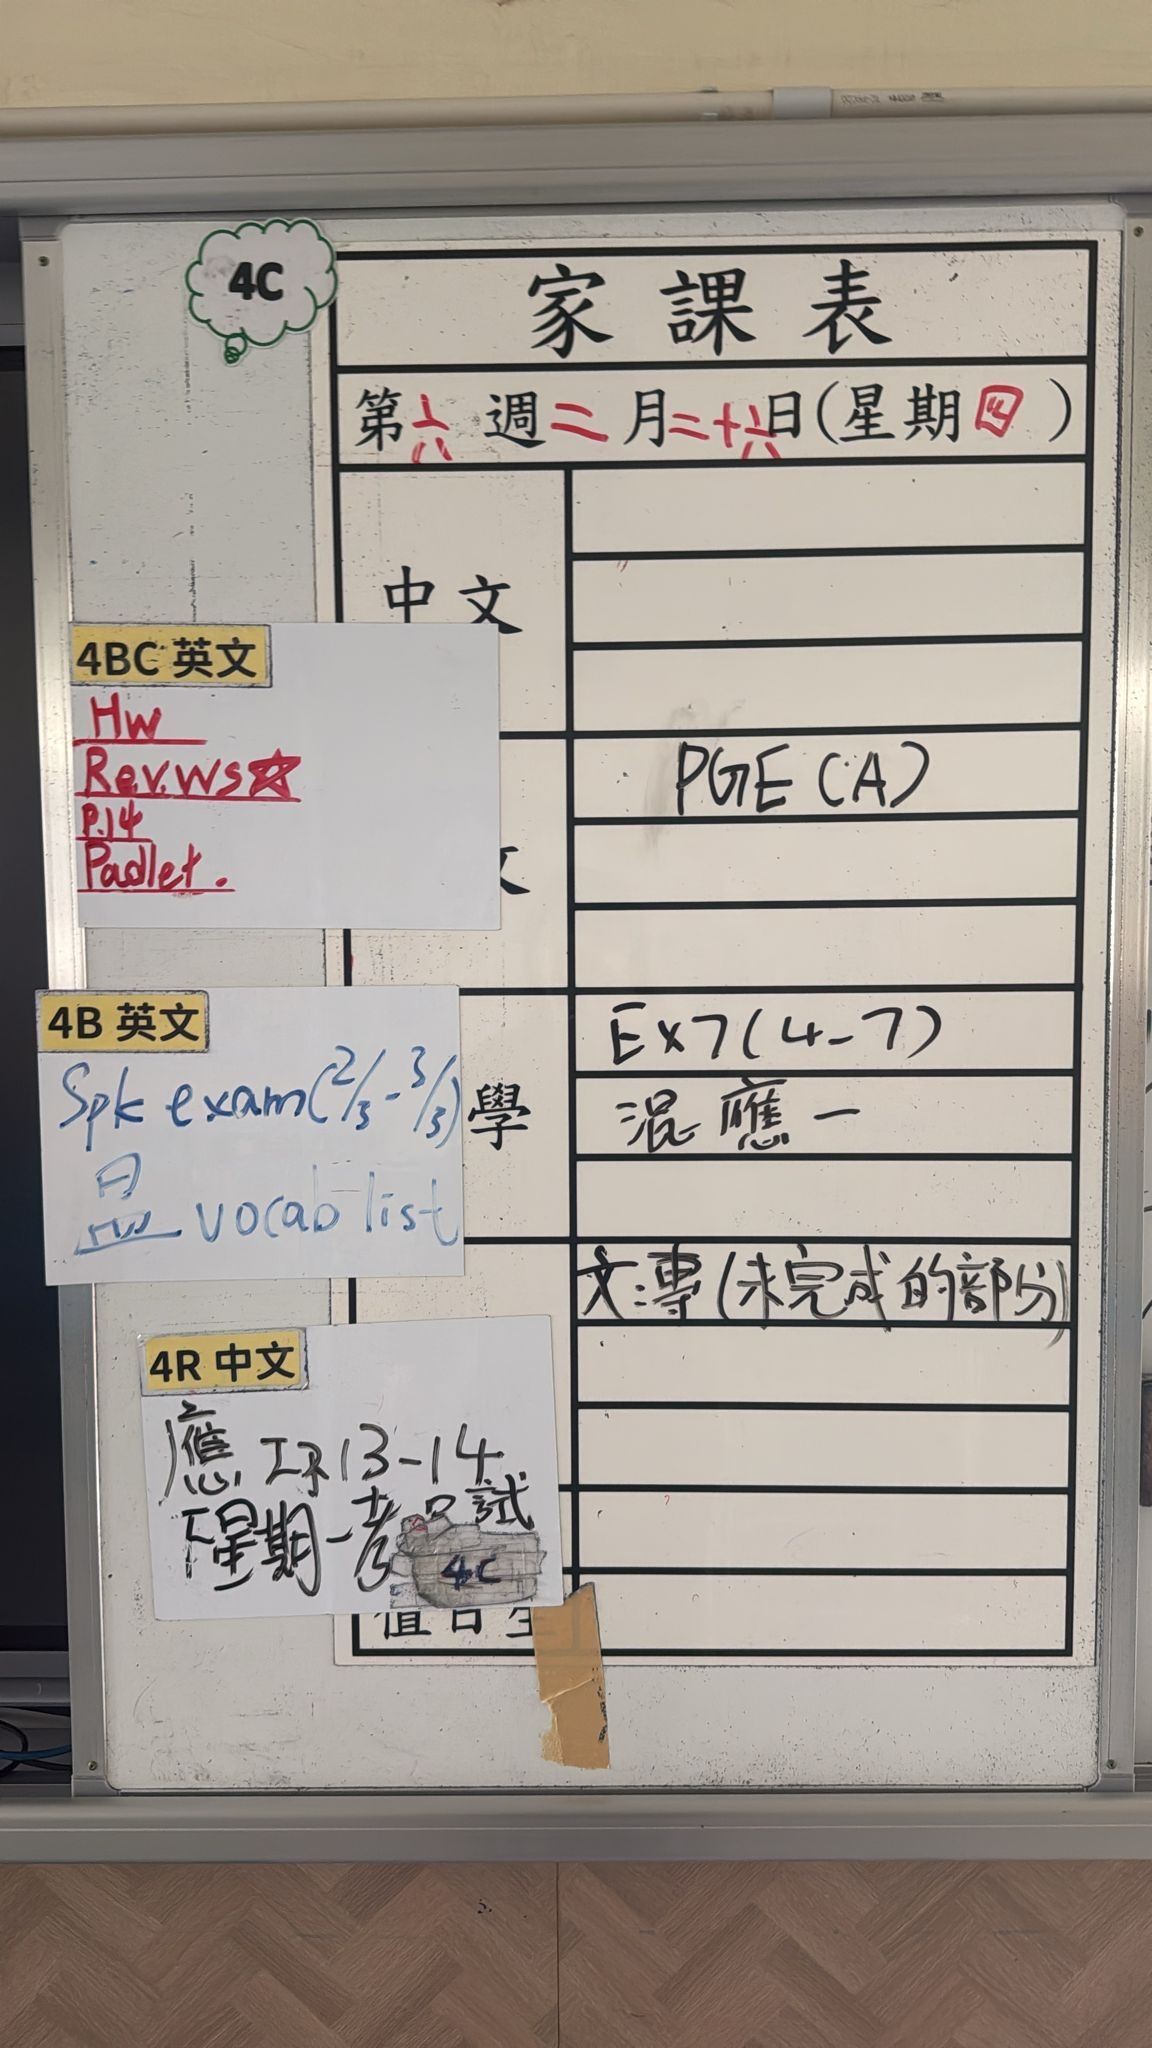 4C
家課表
第六週二月二十六日(星期四)
中文
4BC 英文
HW
Rev.ws☆
P.14
Padlet.
PGE(A)
文
4B 英文
Spk exam(2/3-3/3)
vocab list
學
Ex7(4-7)
混應一
文:專(未完成的部分)
4R 中文
應 13-14
下星期一考 試
4C
值日生